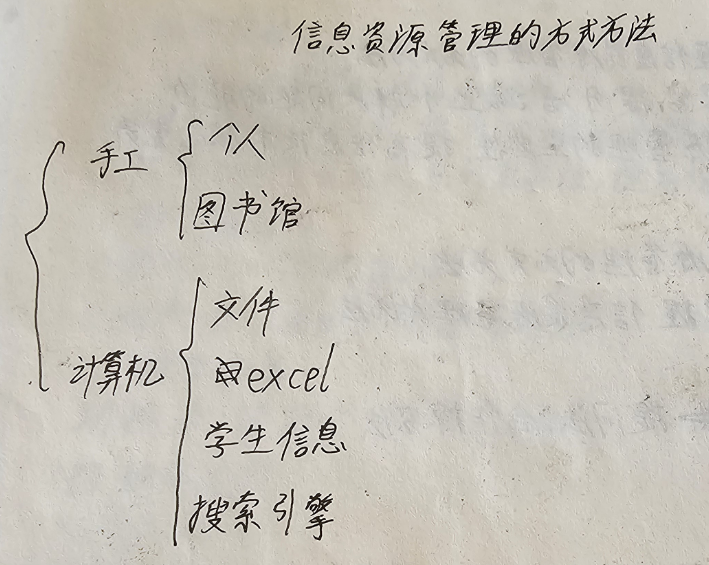 信息资源管理的方式方法
手工
个人
图书馆
计算机
文件
excel
学生信息
搜索引擎